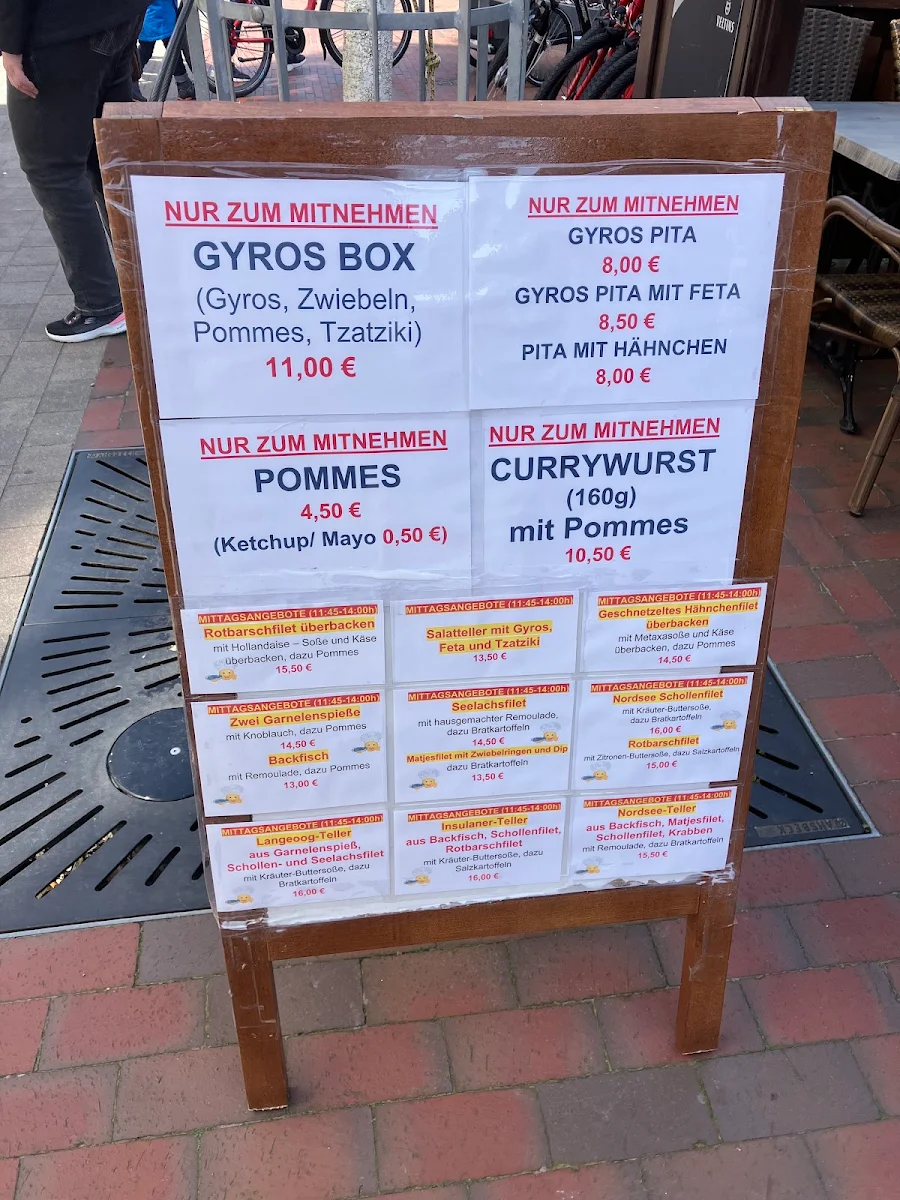 VELTINS
NUR ZUM MITNEHMEN
GYROS BOX
(Gyros, Zwiebeln,
Pommes, Tzatziki)
11,00 €
NUR ZUM MITNEHMEN
GYROS PITA
8,00 €
GYROS PITA MIT FETA
8,50 €
PITA MIT HÄHNCHEN
8,00 €
NUR ZUM MITNEHMEN
POMMES
4,50 €
(Ketchup/ Mayo 0,50 €)
NUR ZUM MITNEHMEN
CURRYWURST
(160g)
mit Pommes
10,50 €
MITTAGSANGEBOTE (11:45-14:00h)
Rotbarschfilet überbacken
mit Hollandaise – Soße und Käse
überbacken, dazu Pommes
15,50 €
MITTAGSANGEBOTE (11:45-14:00h)
Salatteller mit Gyros,
Feta und Tzatziki
13,50 €
MITTAGSANGEBOTE (11:45-14:00h)
Geschnetzeltes Hähnchenfilet
überbacken
mit Metaxasoße und Käse
überbacken, dazu Pommes
14,50 €
MITTAGSANGEBOTE (11:45-14:00h)
Zwei Garnelenspieße
mit Knoblauch, dazu Pommes
14,50 €
Backfisch
mit Remoulade, dazu Pommes
13,00 €
MITTAGSANGEBOTE (11:45-14:00h)
Seelachsfilet
mit hausgemachter Remoulade,
dazu Bratkartoffeln
14,50 €
Matjesfilet mit Zwiebelringen und Dip
dazu Bratkartoffeln
13,50 €
MITTAGSANGEBOTE (11:45-14:00h)
Nordsee Schollenfilet
mit Kräuter-Buttersoße,
dazu Bratkartoffeln
16,00 €
Rotbarschfilet
mit Zitronen-Buttersoße, dazu Salzkartoffeln
15,00 €
MITTAGSANGEBOTE (11:45-14:00h)
Langeoog-Teller
aus Garnelenspieß,
Schollen- und Seelachsfilet
mit Kräuter-Buttersoße, dazu
Bratkartoffeln
16,00 €
MITTAGSANGEBOTE (11:45-14:00h)
Insulaner-Teller
aus Backfisch, Schollenfilet,
Rotbarschfilet
mit Kräuter-Buttersoße, dazu
Salzkartoffeln
16,00 €
MITTAGSANGEBOTE (11:45-14:00h)
Nordsee-Teller
aus Backfisch, Matjesfilet,
Schollenfilet, Krabben
mit Remoulade, dazu Bratkartoffeln
15,50 €